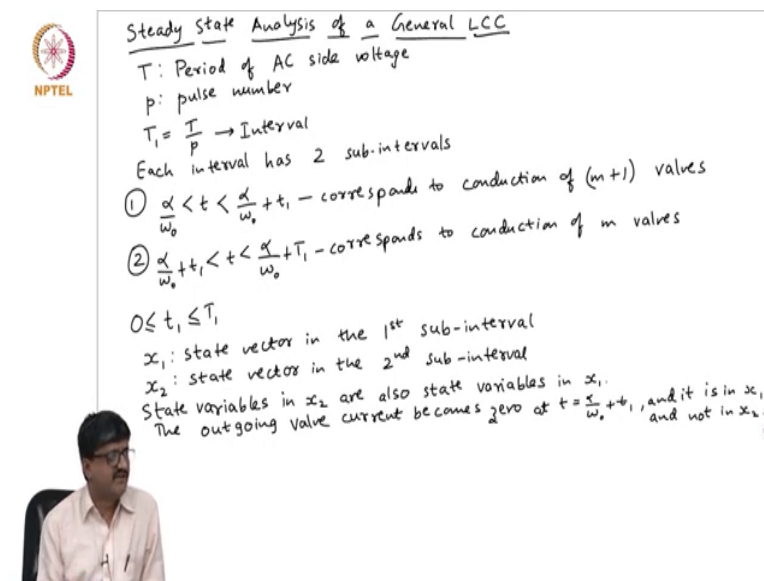 Steady State Analysis of a General LCC
T : Period of AC side voltage
p : pulse number
T₁ = T/p → Interval
Each interval has 2 sub-intervals
① α/ω₀ < t < α/ω₀ + t₁ – corresponds to conduction of (m+1) valves
② α/ω₀ + t₁ < t < α/ω₀ + T₁ – corresponds to conduction of m valves
0 ≤ t₁ ≤ T₁
x₁ : state vector in the 1st sub-interval
x₂ : state vector in the 2nd sub-interval
State variables in x₂ are also state variables in x₁.
The outgoing valve current becomes zero at t = α/ω₀ + t₁, and it is in x₁ and not in x₂.
NPTEL